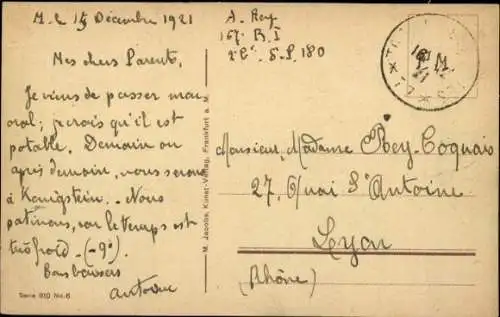 M. le 15 Décembre 1921
Mes chers Parents,
Je viens de passer mon
oral; je crois qu'il est
potable. Demain ou
après demain, nous serons
à Königstein. Nous
patinons, car le temps est
très froid. (-9°)
Bons baisers
Antoine
Serie 910 No. 6
M. Jacobs, Kunst-Verlag, Frankfurt a. M.
A. Rey
167e R. I
1e Cie. S.P. 180
Monsieur, Madame Rey-Coquais
27, Quai St Antoine
Lyon
(Rhône)